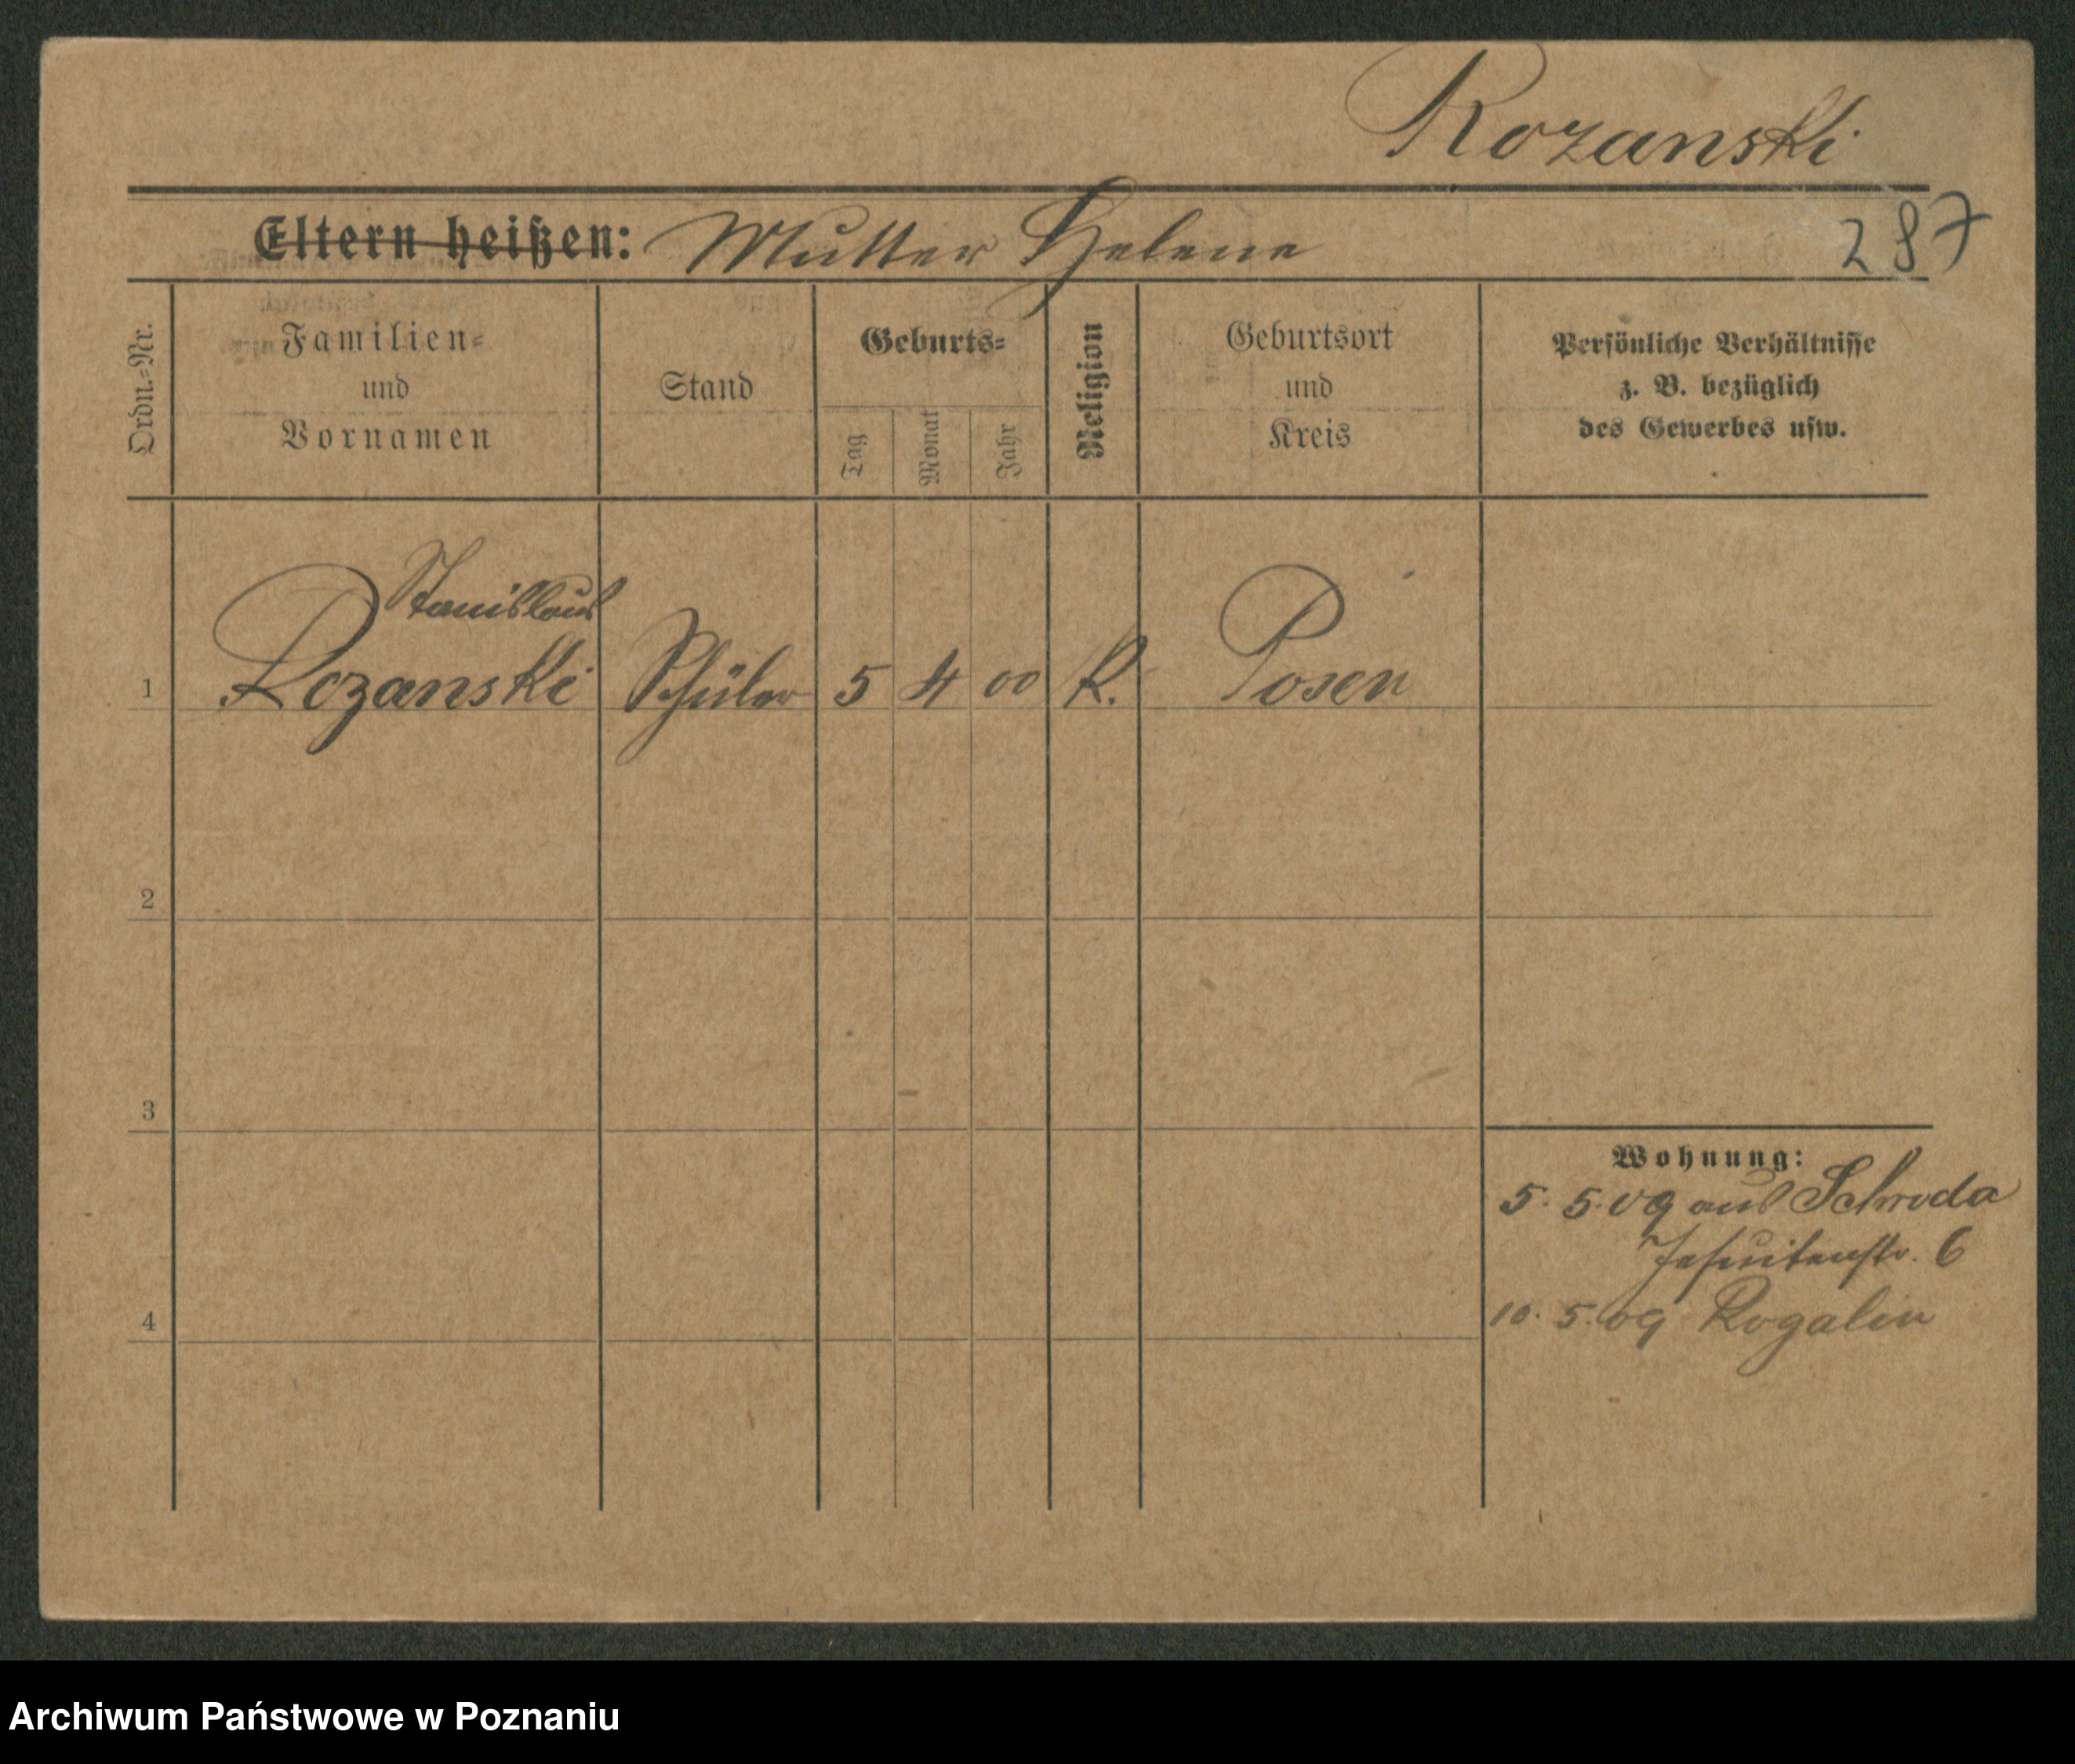 Rozanski
Eltern heißen: Mutter Helene
287
Ordn.=Nr.
Familien=
und
Vornamen
Stand
Geburts=
Tag
Monat
Jahr
Religion
Geburtsort
und
Kreis
Persönliche Verhältnisse
z. B. bezüglich
des Gewerbes usw.
Stanislaus
1 Rozanski Schüler 5 4 00 K. Posen
2
3
Wohnung:
5. 5. 09 aus Schroda
Jesuitenstr. 6
4
10. 5. 09 Rogalin
Archiwum Państwowe w Poznaniu